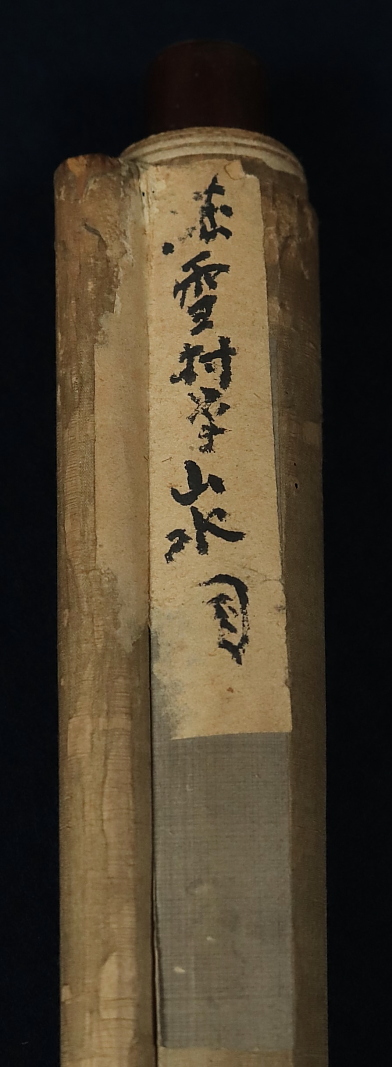 雪村筆山水図